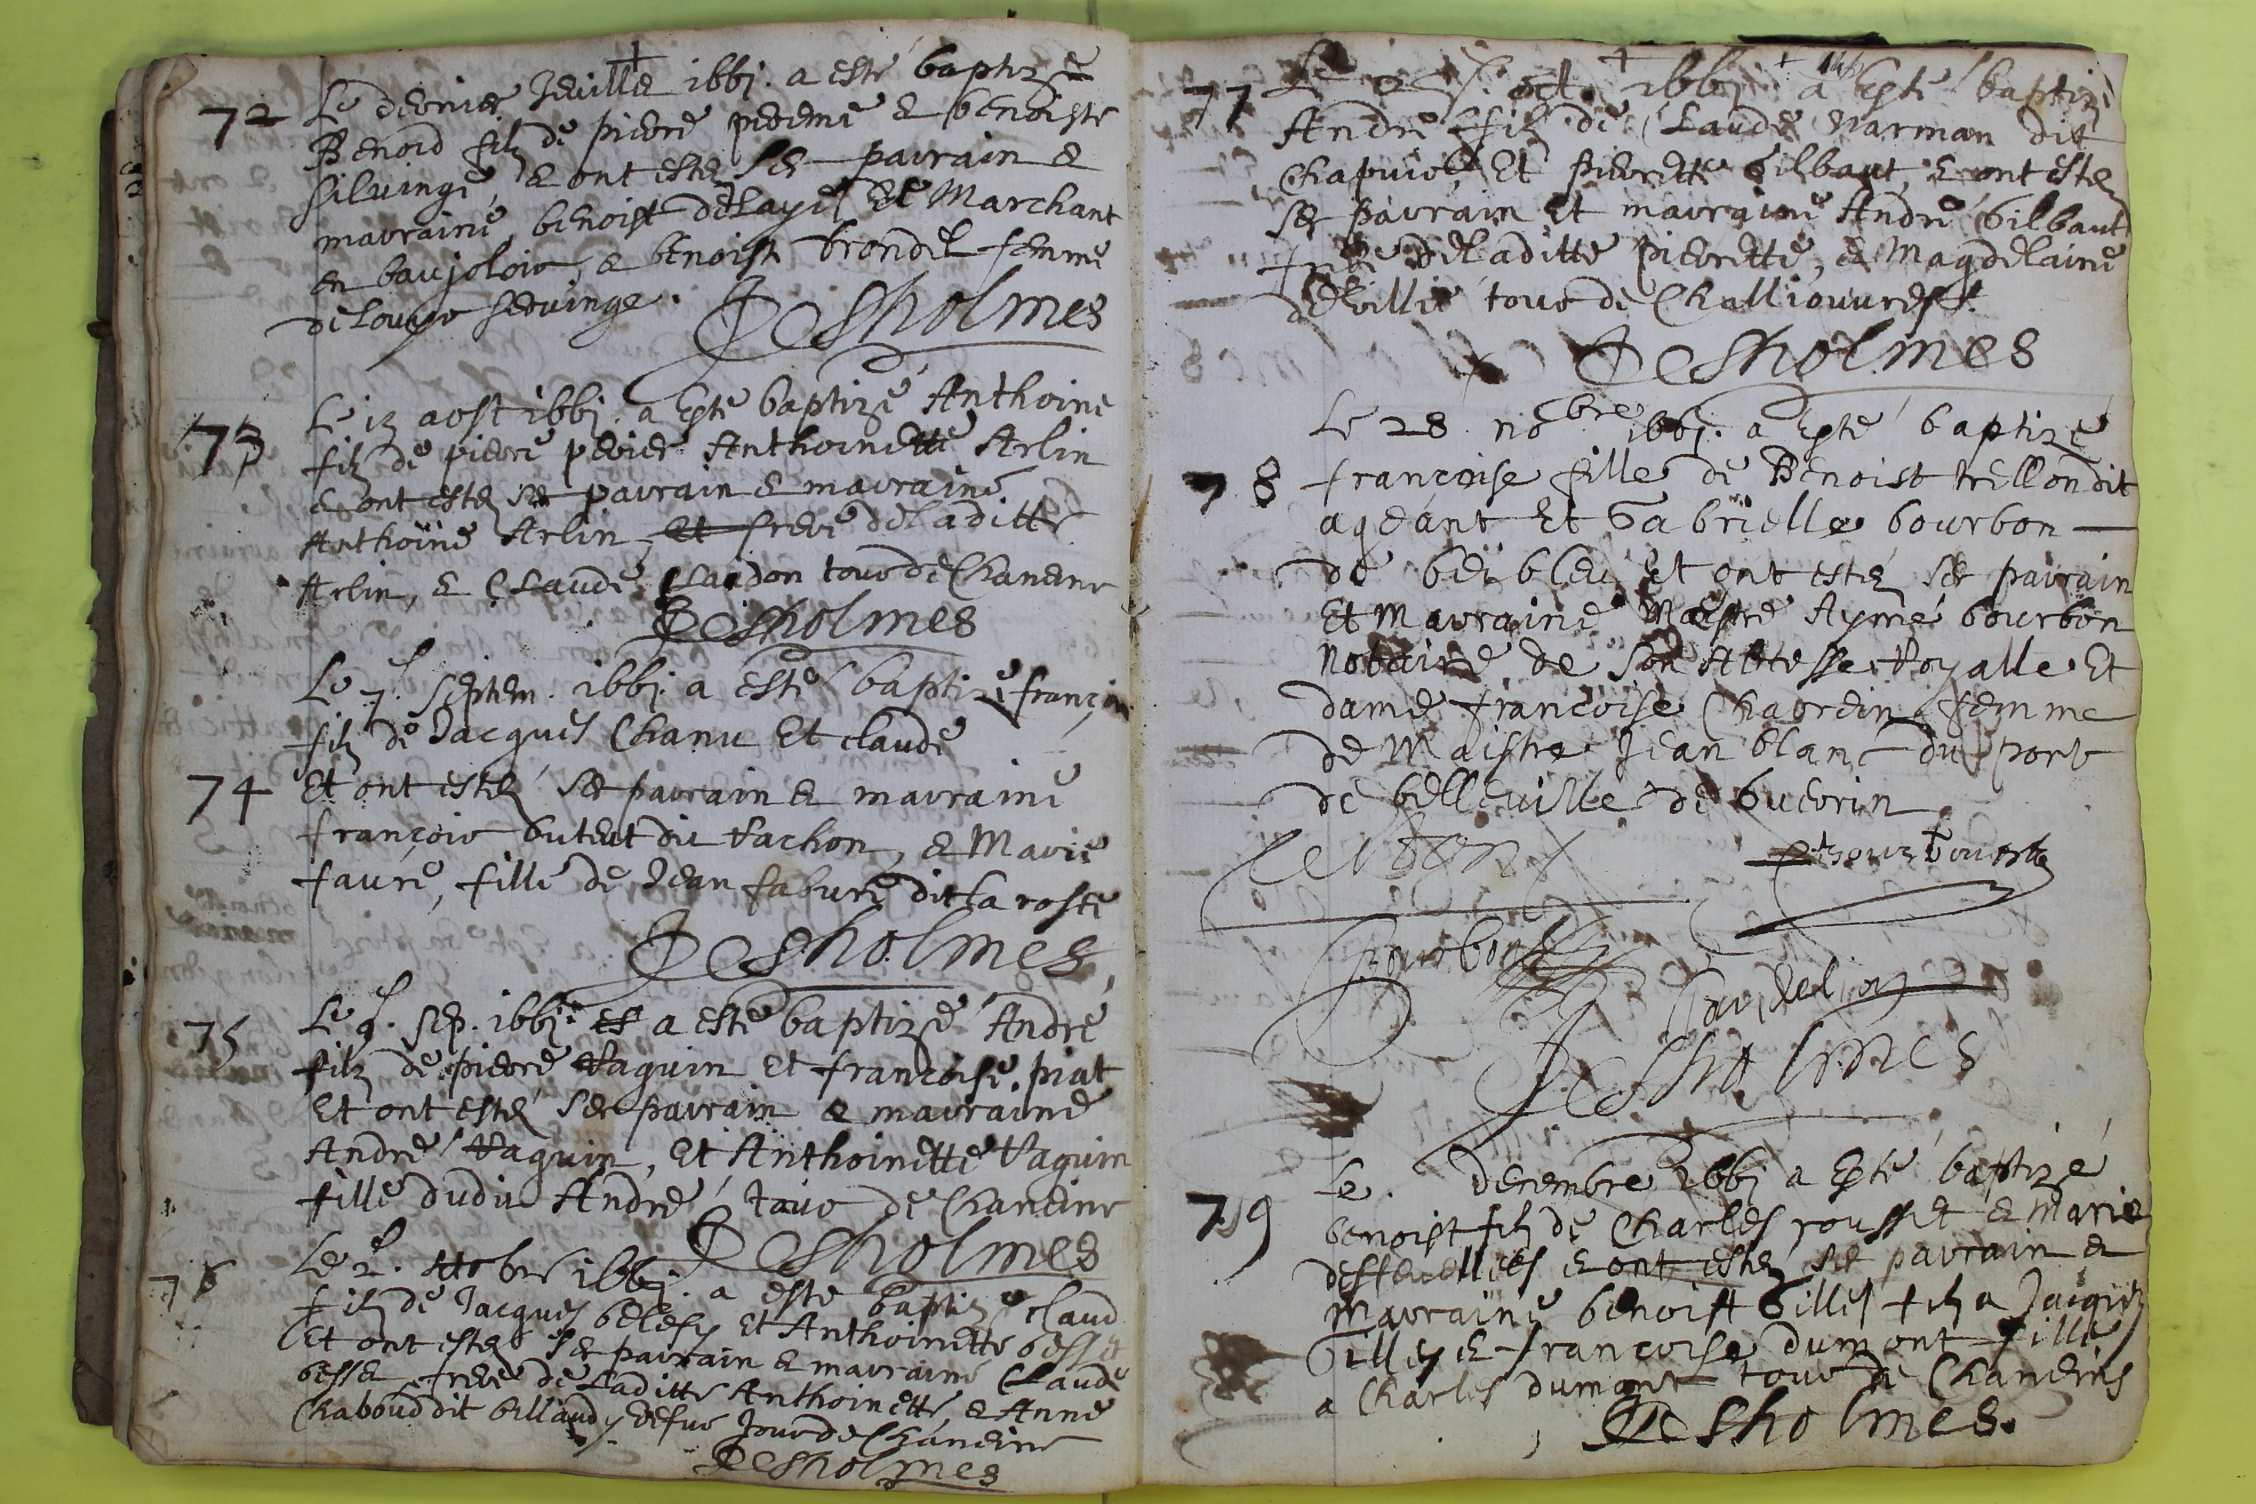 72 Le dernier Jeuille ibbj. a esté baptizé
Benoid filz de pierre & benoiste
Siluinge, & ont estez ses parrain &
marraine, benoist delaye Marchant
en baujolois, & benoist brondel femme
de Louys Seruinge.
Desholmes
73 Le iz aost ibbj. a esté baptizé Anthoine
filz de pierre perier Anthoinette Arlin
& ont estez ses parrain & marraine
Anthoine Arlin, et frere deladitte
Arlin, & Claude tous de Chaneins
Desholmes
Le 7. septem. ibbj. a esté baptizé françois
filz de Jacques Chanu Et claude
74 Et ont estez ses parrain & marraine
françois dit Vachon, & Marie
faure, fille de Jean fabure dit La roste
Desholmes
75 Le 9. sep. ibbj. et a esté baptizé André
filz de pierre Vaguin Et françoise piat
Et ont estez ses parrain & marraine
André Vaguin, Et Anthoinette Vaguin
fille dudit André, tous de Chaneins
Desholmes
76 Le 2. ttobre ibbj. a esté baptizé claud
filz de Jacques Et Anthoinette besset
Et ont estez ses parrain & marraine Claude
besset frere de Laditte Anthoinette, & Anne
Chaboud dit billaud, tous de Chaneins
Desholmes
77 Le oct. ibbj. a esté baptizé
André filz de Claude Narman dit
Chapuis Et pierrette Gilbaut, & ont estez
ses parrain Et marraine André Gilbaut
frere deladitte pierrette, & Magdelaine
tous de Challiouvres.
Desholmes
Le 28 nobre ibbj. a esté baptizé
78 françoise fille de Benoist trellon dit
ageant Et Gabrielle bourbon
de Et ont estéz ses parrain
Et Marraine Maistre Aymé bourbon
Notaire de Son Altesse Royalle Et
dame françoise femme
de Maistre Jean blanc du port
de belleuille de Guerrin
Bourbon
Desholmes
79 Le. decembre ibbj a esté baptizé
benoist filz de Charles rousset & Marie
& ont estez ses parrain &
Marraine benoist Gilles filz a Jacques
Gilles & françoise dumont fille
a Charles dumont tous de Chaneins
Desholmes.